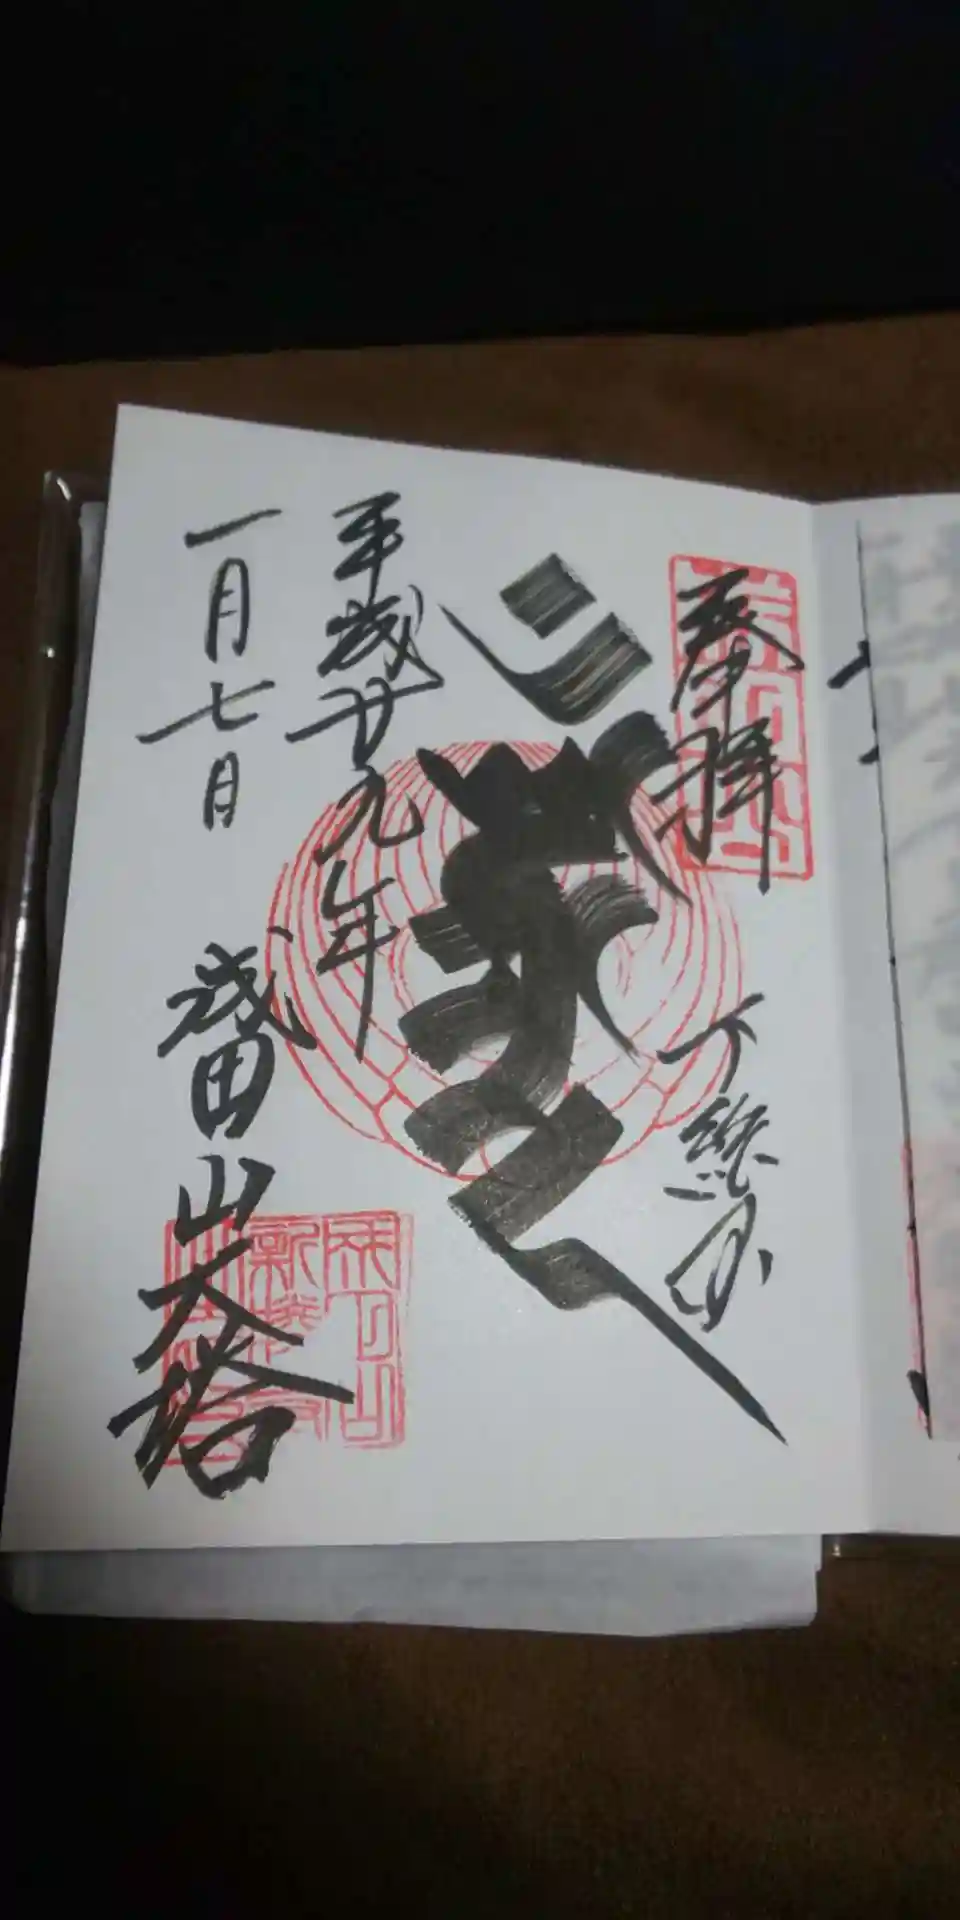 奉拝
下総国
平成廿九年
一月七日
成田山大塔
成田山
新勝寺